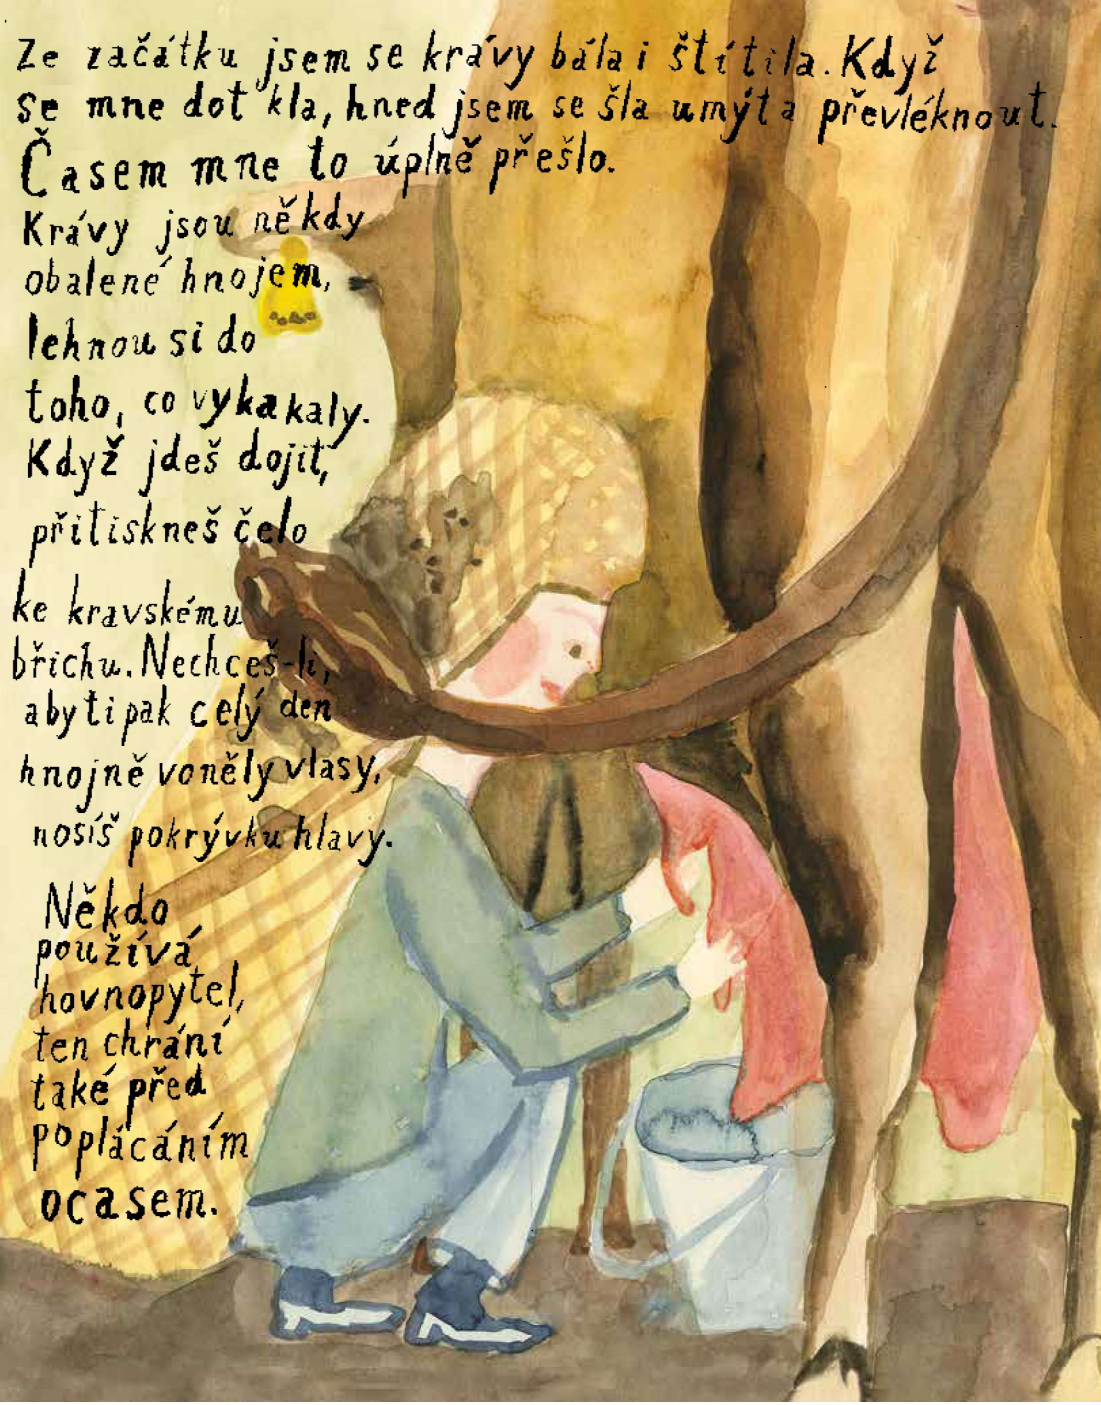 Ze začátku jsem se krávy bála i štítila. Když
se mne dotkla, hned jsem se šla umýt a převléknout.
Časem mne to úplně přešlo.
Krávy jsou někdy
obalené hnojem,
lehnou si do
toho, co vykakaly.
Když jdeš dojit,
přitiskneš čelo
ke kravskému
břichu. Nechceš-li,
aby ti pak celý den
hnojně voněly vlasy,
nosíš pokrývku hlavy.
Někdo
používá
hovnopytel,
ten chrání
také před
poplácáním
ocasem.